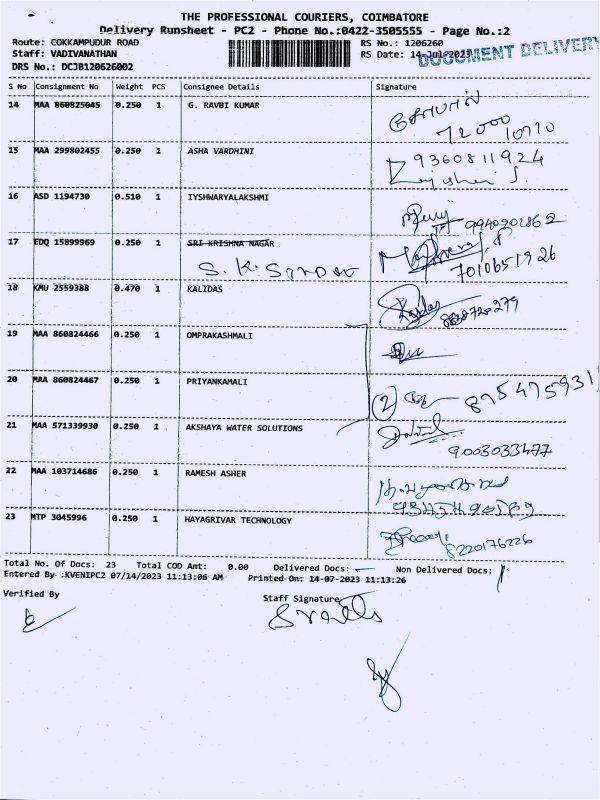 THE PROFESSIONAL COURIERS, COIMBATORE
Delivery Runsheet - PC2 - Phone No.:0422-3505555 - Page No.:2
Route: COKKAMPUDUR ROAD RS No.: 1206260
Staff: VADIVANATHAN RS Date: 14-Jul-2023
DOCUMENT DELIVERY
DRS No.: DCJB120626002
S No Consignment No Weight PCS Consignee Details Signature
14 MAA 860825045 0.250 1 G. RAVBI KUMAR
15 MAA 299802455 0.250 1 ASHA VARDHINI
9360811924
16 ASD 1194730 0.510 1 IYSHWARYALAKSHMI
17 EDQ 15899969 0.250 1 SRI KRISHNA NAGAR
7010651926
18 KMU 2559388 0.470 1 KALIDAS
19 MAA 860824466 0.250 1 OMPRAKASHMALI
20 MAA 860824467 0.250 1 PRIYANKAMALI
2 8754775931
21 MAA 571339930 0.250 1 AKSHAYA WATER SOLUTIONS
9003033477
22 MAA 103714686 0.250 1 RAMESH ASHER
23 MTP 3045996 0.250 1 HAYAGRIVAR TECHNOLOGY
8220176226
Total No. Of Docs: 23 Total COD Amt: 0.00 Delivered Docs: Non Delivered Docs:
Entered By :KVENIPC2 07/14/2023 11:13:06 AM Printed On: 14-07-2023 11:13:26
Verified By Staff Signature